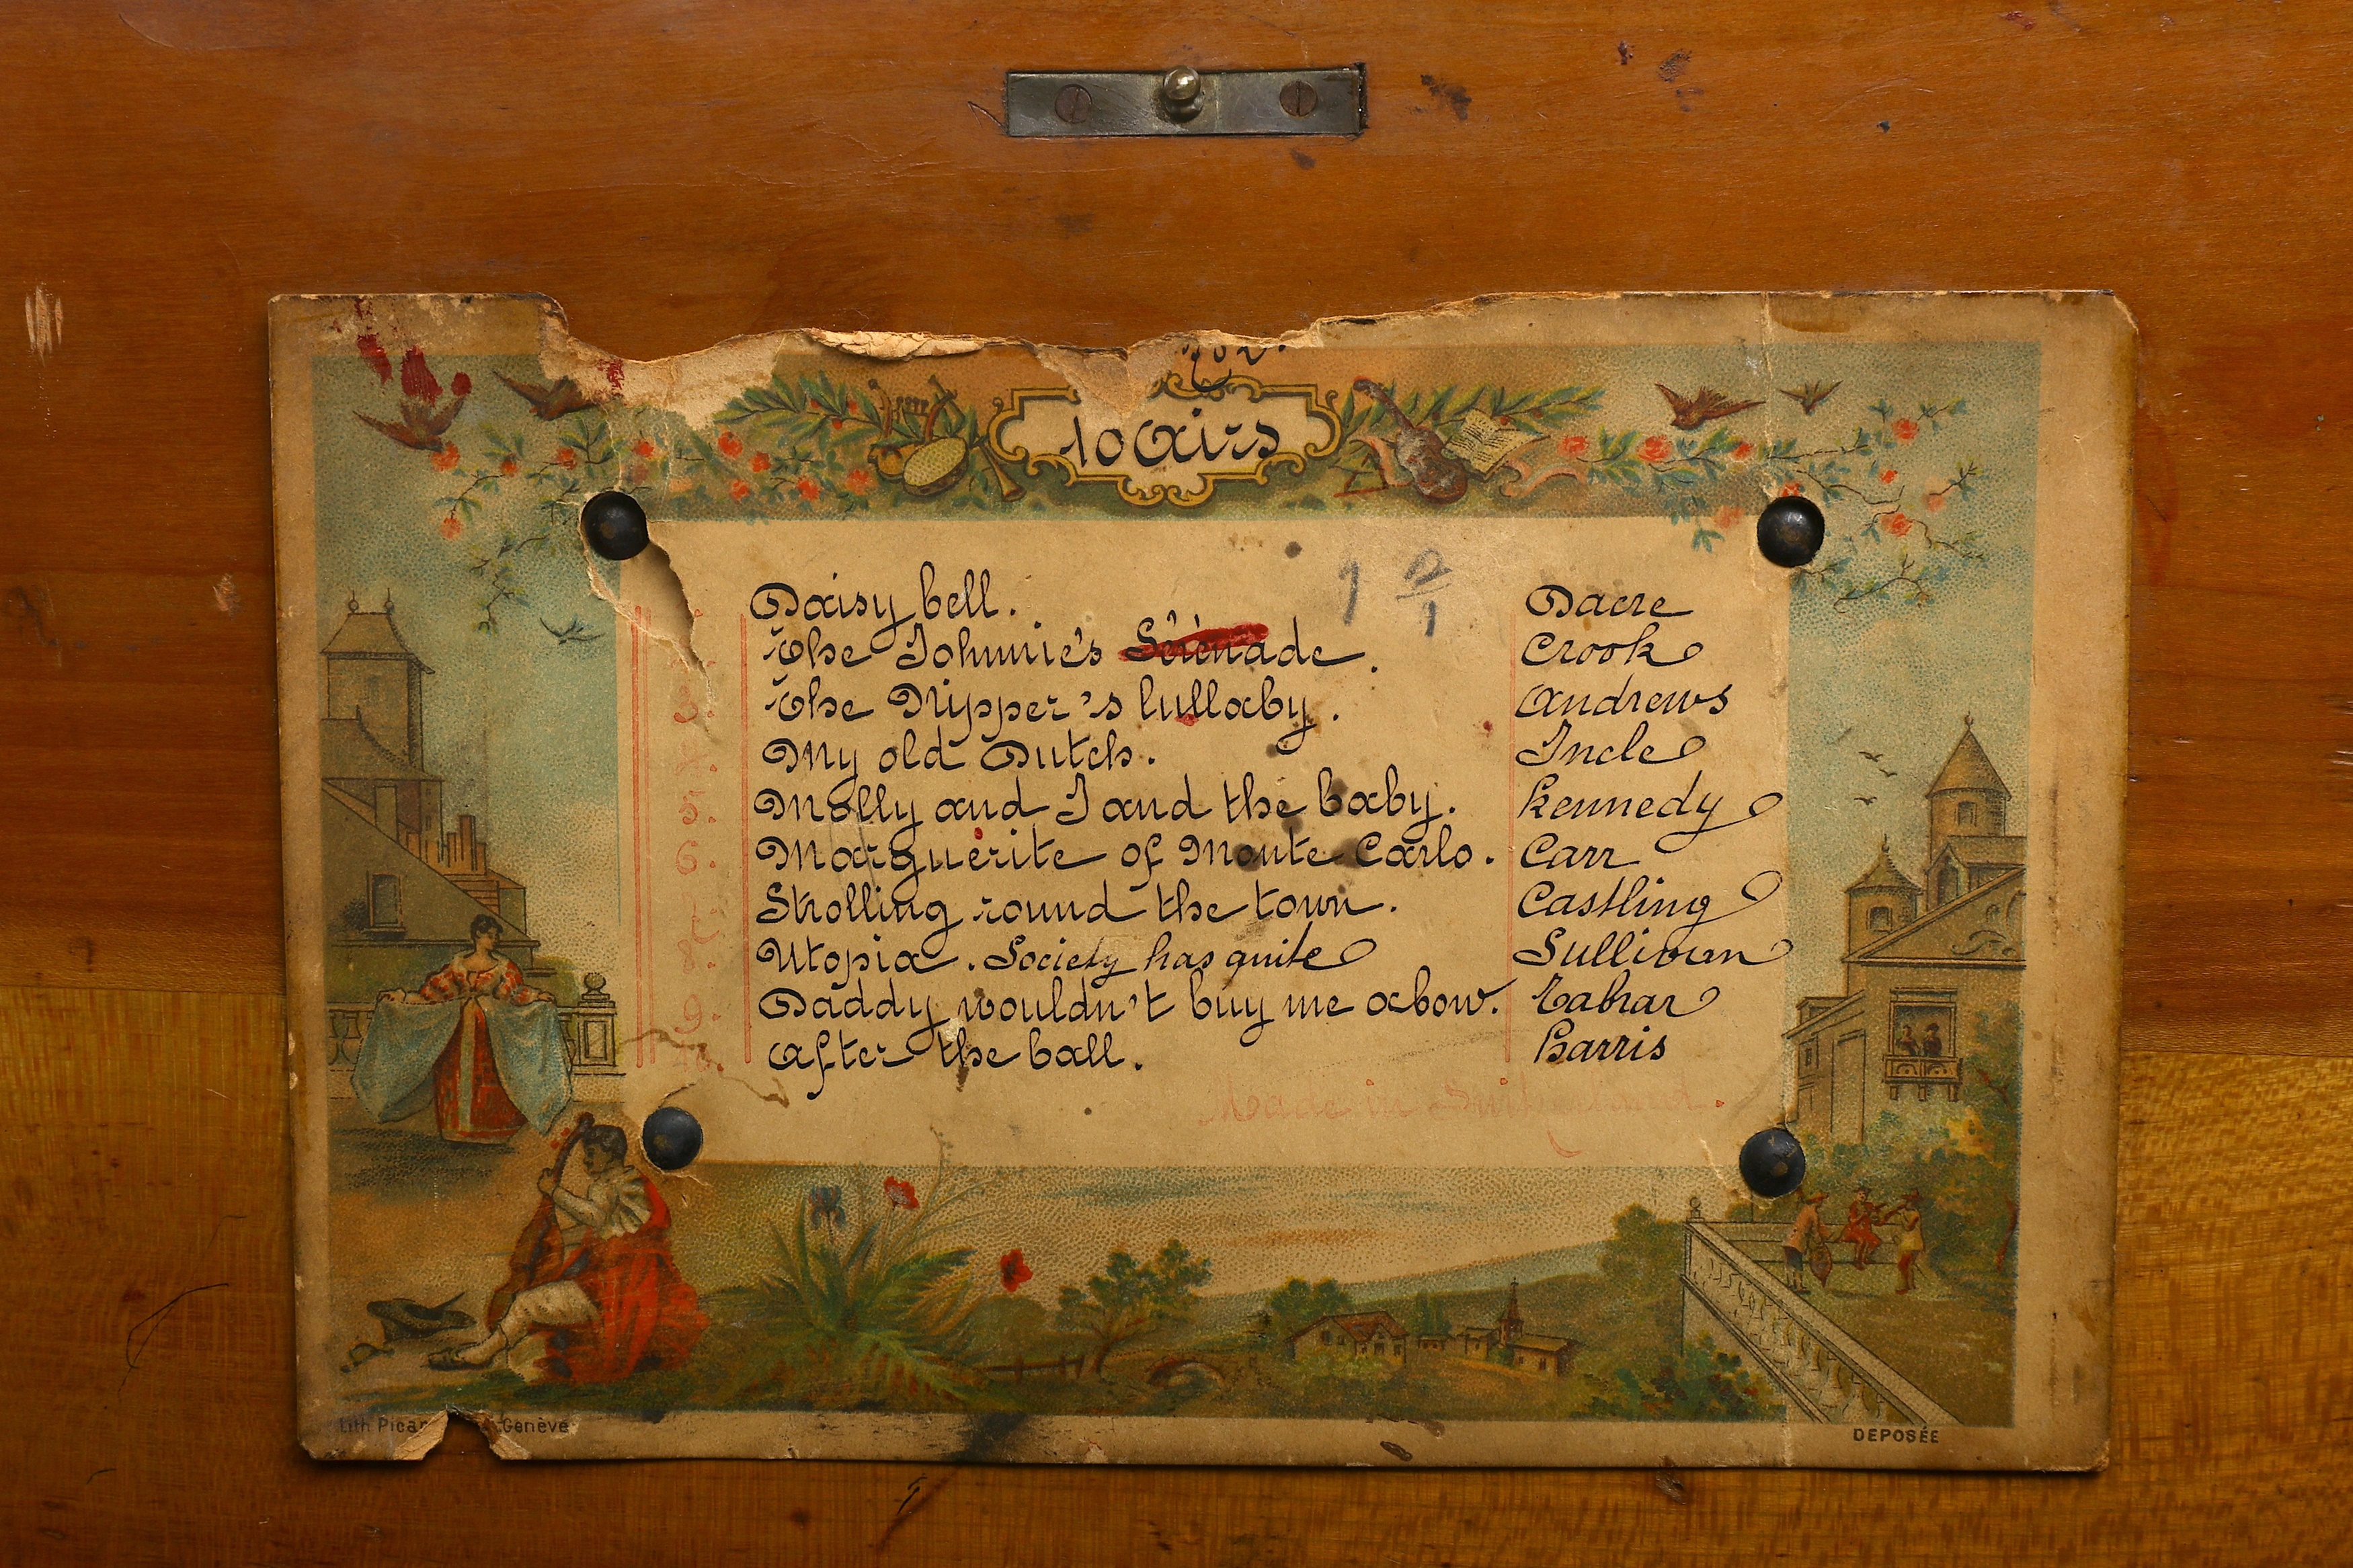 10 Airs
1 2/1
Daisy bell. Dacre
The Johnnie's Sérénade. Crook
The Nipper's lullaby. Andrews
My old Dutch. Incle
5. Molly and I and the baby. Kennedy
6. Marguerite of Monte Carlo. Carr
Strolling round the town. Castling
8. Utopia. Society has quite Sullivan
9. Daddy wouldn't buy me abow. Tabrar
10. After the ball. Harris
Made in
Lith Genève
DEPOSÉE